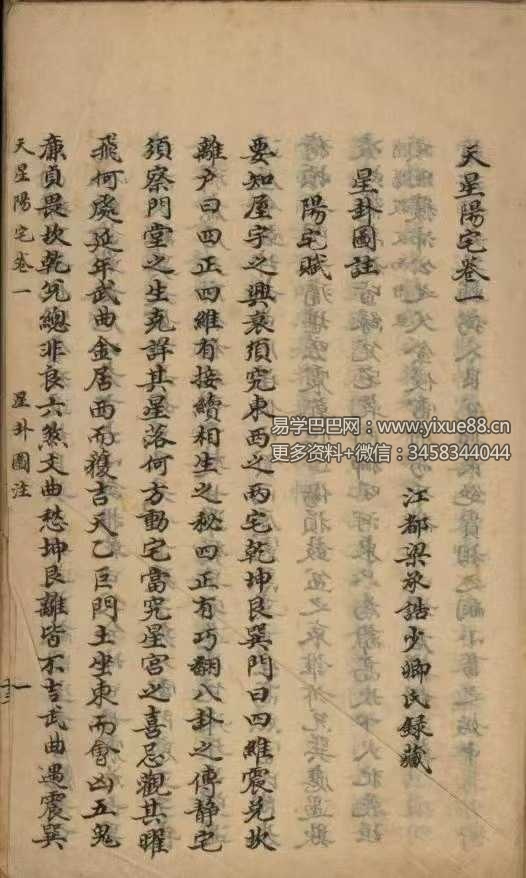 天星陽宅卷一
江都梁承誥少卿氏錄藏
星卦圖註
陽宅賦
要知屋宇之興衰須究東西之兩宅乾坤艮巽門曰四維震兌坎
離戶曰四正四維有接續相生之秘四正有巧翻八卦之傳靜宅
須察門堂之生克詳其星落何方動宅當究星宮之喜忌觀其曜
飛何處延年武曲金居西而獲吉天乙巨門土坐東而會凶五鬼
廉貞畏坎乾兌總非良六煞文曲愁坤艮離皆不吉武曲遇震巽
天星陽宅卷一
星卦圖注
一
易学巴巴网 www.yixue88.cn
更多资料+微信：3458344044